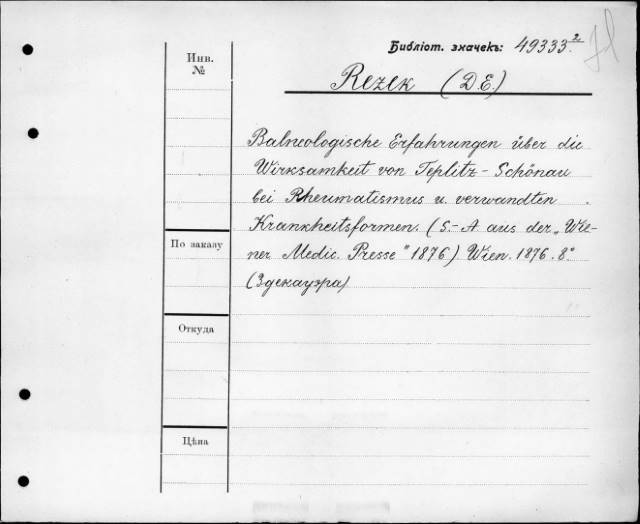 Библіот. значекъ: 49333.²
Инв.
№
Rezek (D.E.)
Balneologische Erfahrungen über die
Wirksamkeit von Teplitz-Schönau
bei Rheumatismus u. verwandten
Krankheitsformen. (S.-A aus der „Wie-
ner Medic. Presse" 1876) Wien. 1876. 8°
(Здекауэра)
По заказу
Откуда
Цѣна